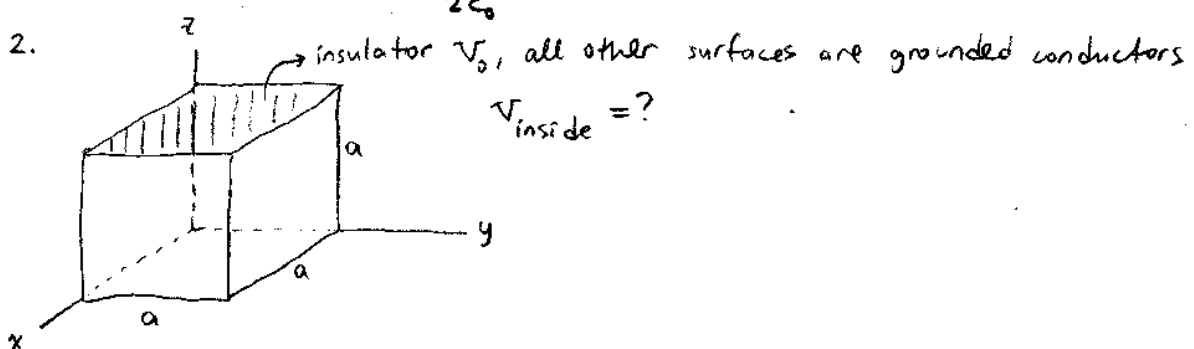 2ϵ₀
2.
z
insulator V₀, all other surfaces are grounded conductors
V inside = ?
a
y
a
a
x